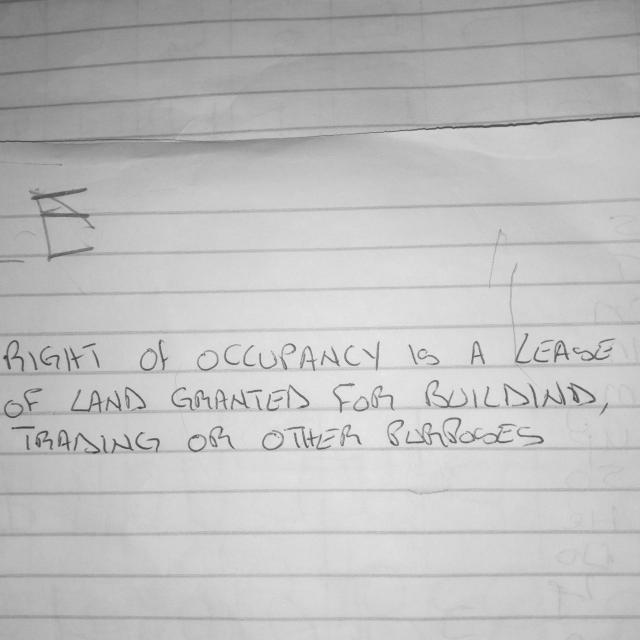 RIGHT Of OCCUPANCY Is A LEASE
OF LAND GRANTED FOR BUILDIND,
TRADING OR OTHER PURPOSES